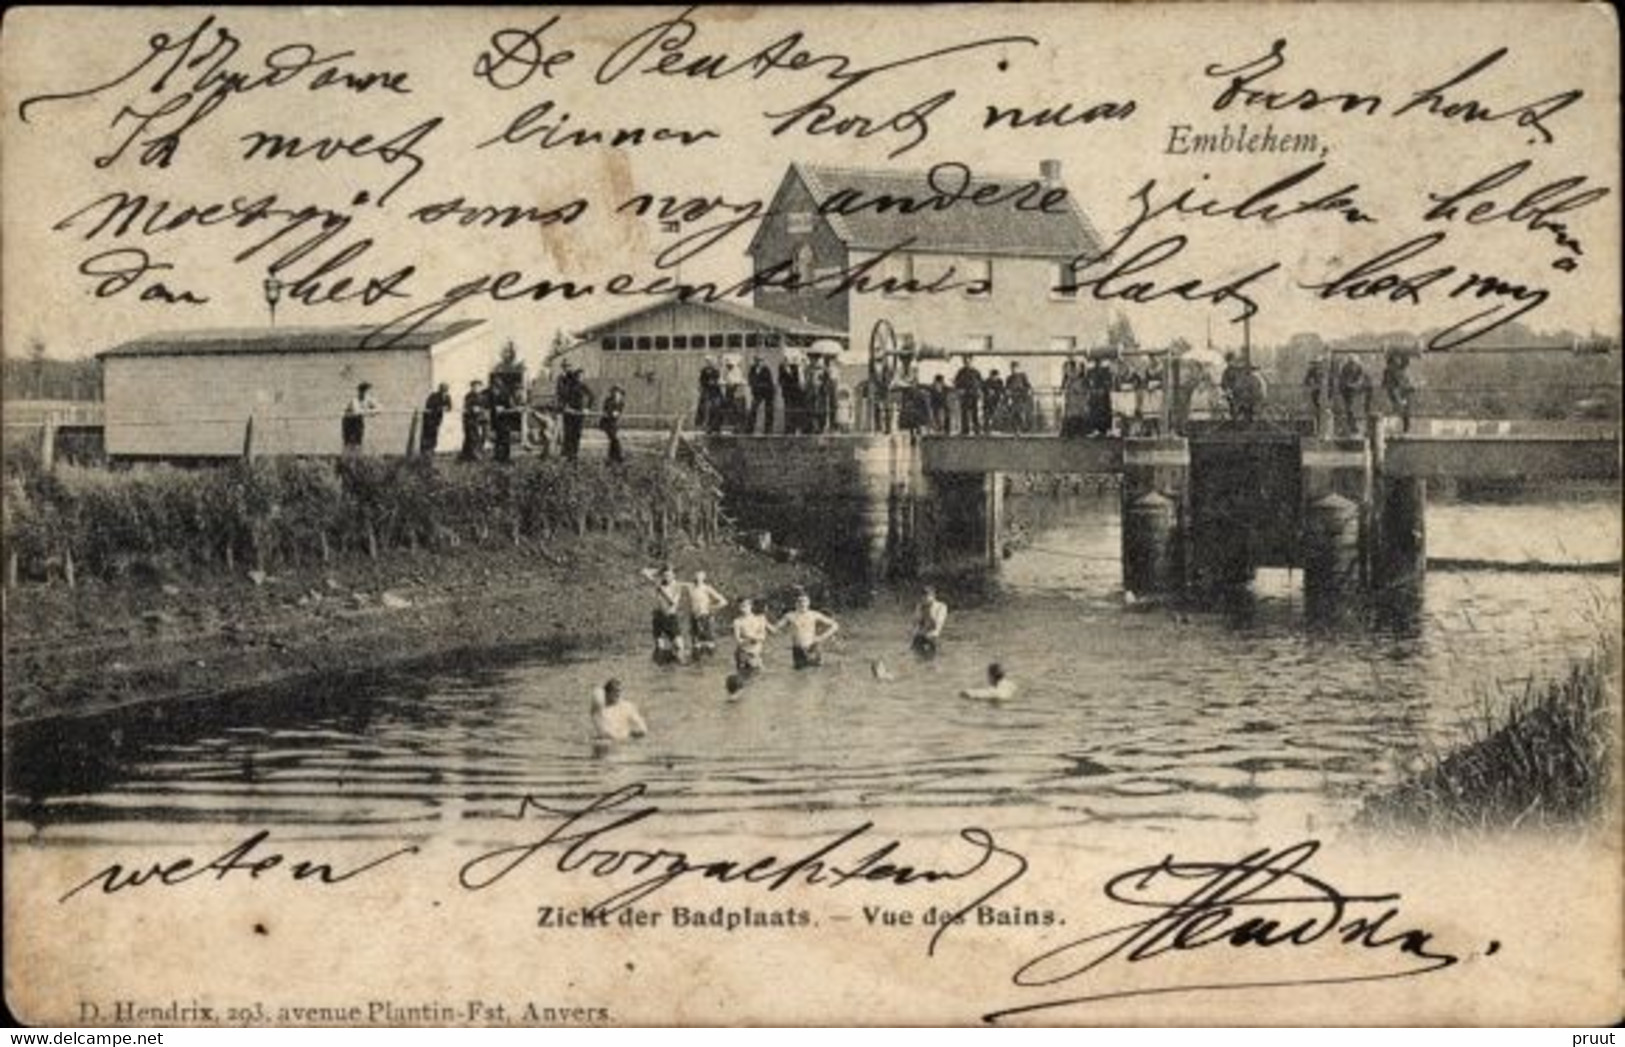 Madame De Peuter.
Ik moet binnen kort naar Turnhout.
Emblehem,
Moest gij soms nog andere zichten hebben
dan het gemeentehuis laat het mij
weten Hoogachtend
Zicht der Badplaats. — Vue des Bains.
D. Hendrix, 203, avenue Plantin-Fst, Anvers.
delcampe.net
pruut